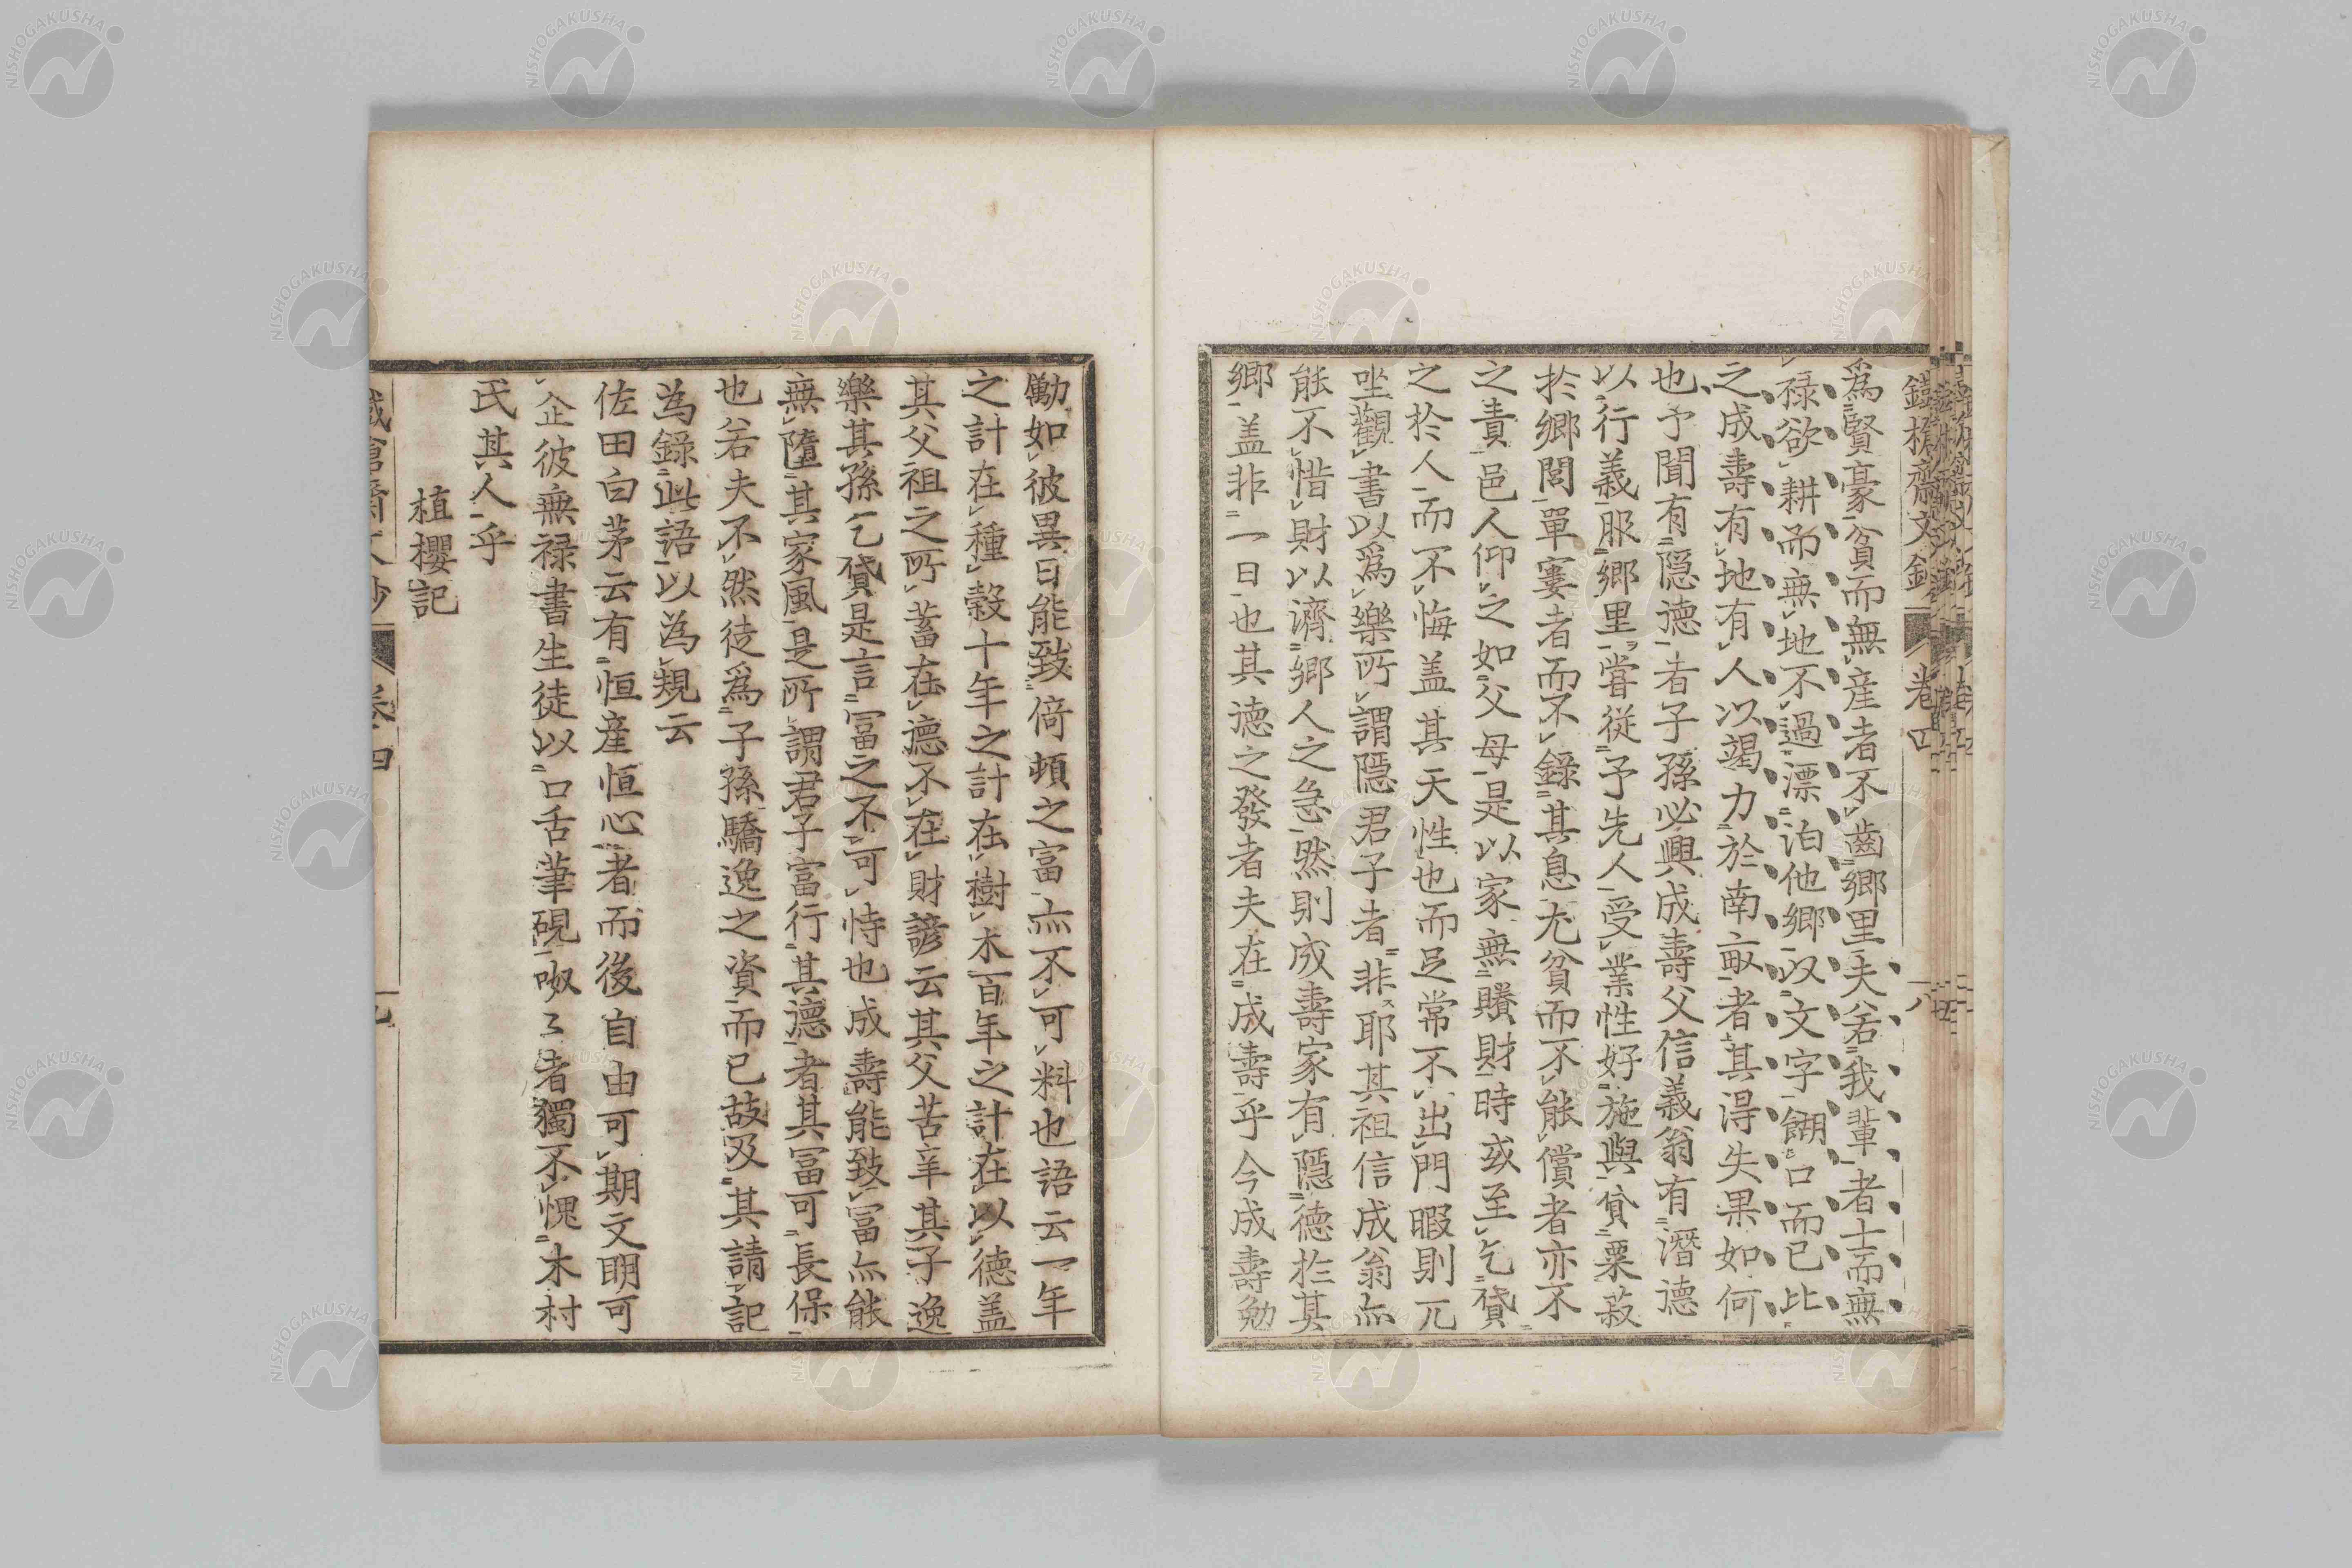 爲賢豪貧而無産者不齒鄉里夫若我輩者士而無
禄欲耕而無地不過漂泊他鄉以文字餬口而已比
之成壽有地有人以竭力於南畝者其得失果如何
也予聞有隠徳者子孫必興成壽父信義翁有潛德
以行義服鄉里嘗從予先人受業性好施與貸粟菽
於鄉閭單寠者而不錄其息尤貧而不能償者亦不
之責邑人仰之如父母是以家無賸財時或至乞貸
之於人而不悔盖其天性也而足常不出門暇則兀
坐觀書以爲樂所謂隠君子者非耶其祖信成翁亦
能不惜財以濟鄉人之急然則成壽家有隠德於其
鄉盖非一日也其徳之發者夫在成壽乎今成壽勉
卷四
勵如彼異日能致倚頓之富亦不可料也語云一年
之計在種穀十年之計在樹木百年之計在以德盖
其父祖之所蓄在德不在財諺云其父苦辛其子逸
樂其孫乞貸是言冨之不可恃也成壽能致冨亦能
無墮其家風是所謂君子富行其德者其冨可長保
也若夫不然徒爲子孫驕逸之資而已故及其請記
為錄此語以為規云
佐田白茅云有恒産恒心者而後自由可期文明可
企彼無禄書生徒以口舌筆硯呶々者獨不愧木村
氏其人乎
植櫻記